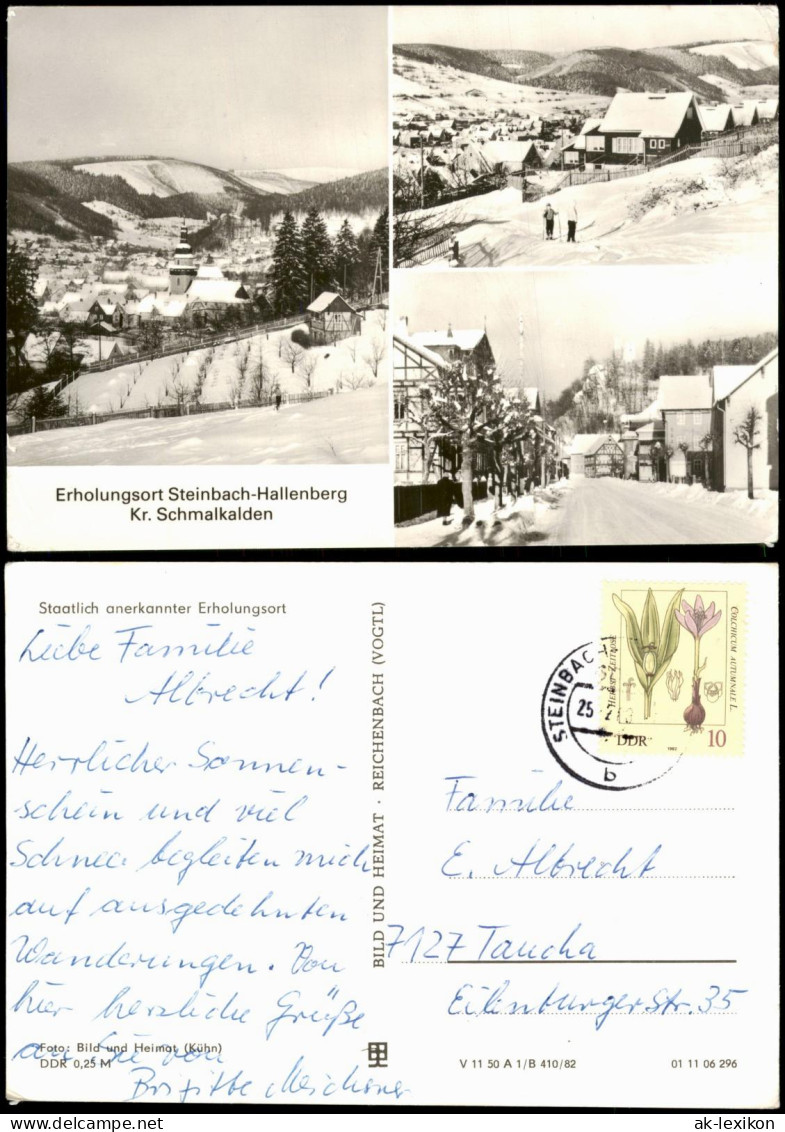 Erholungsort Steinbach-Hallenberg
Kr. Schmalkalden
Staatlich anerkannter Erholungsort
Liebe Familie
Albrecht!
Herrlicher Sonnen-
schein und viel
Schnee begleiten mich
auf ausgedehnten
Wanderungen. Von
hier herzliche Grüße
an Sie von
Brigitte
Foto: Bild und Heimat (Kühn)
DDR 0,25 M
BILD UND HEIMAT · REICHENBACH (VOGTL)
STEINBACH
25
b
HERBST-ZEITLOSE
COLCHICUM AUTUMNALE L.
DDR
1982
10
Familie
E. Albrecht
7127 Taucha
Eilenburger Str. 35
V 11 50 A 1/B 410/82
01 11 06 296
ak-lexikon